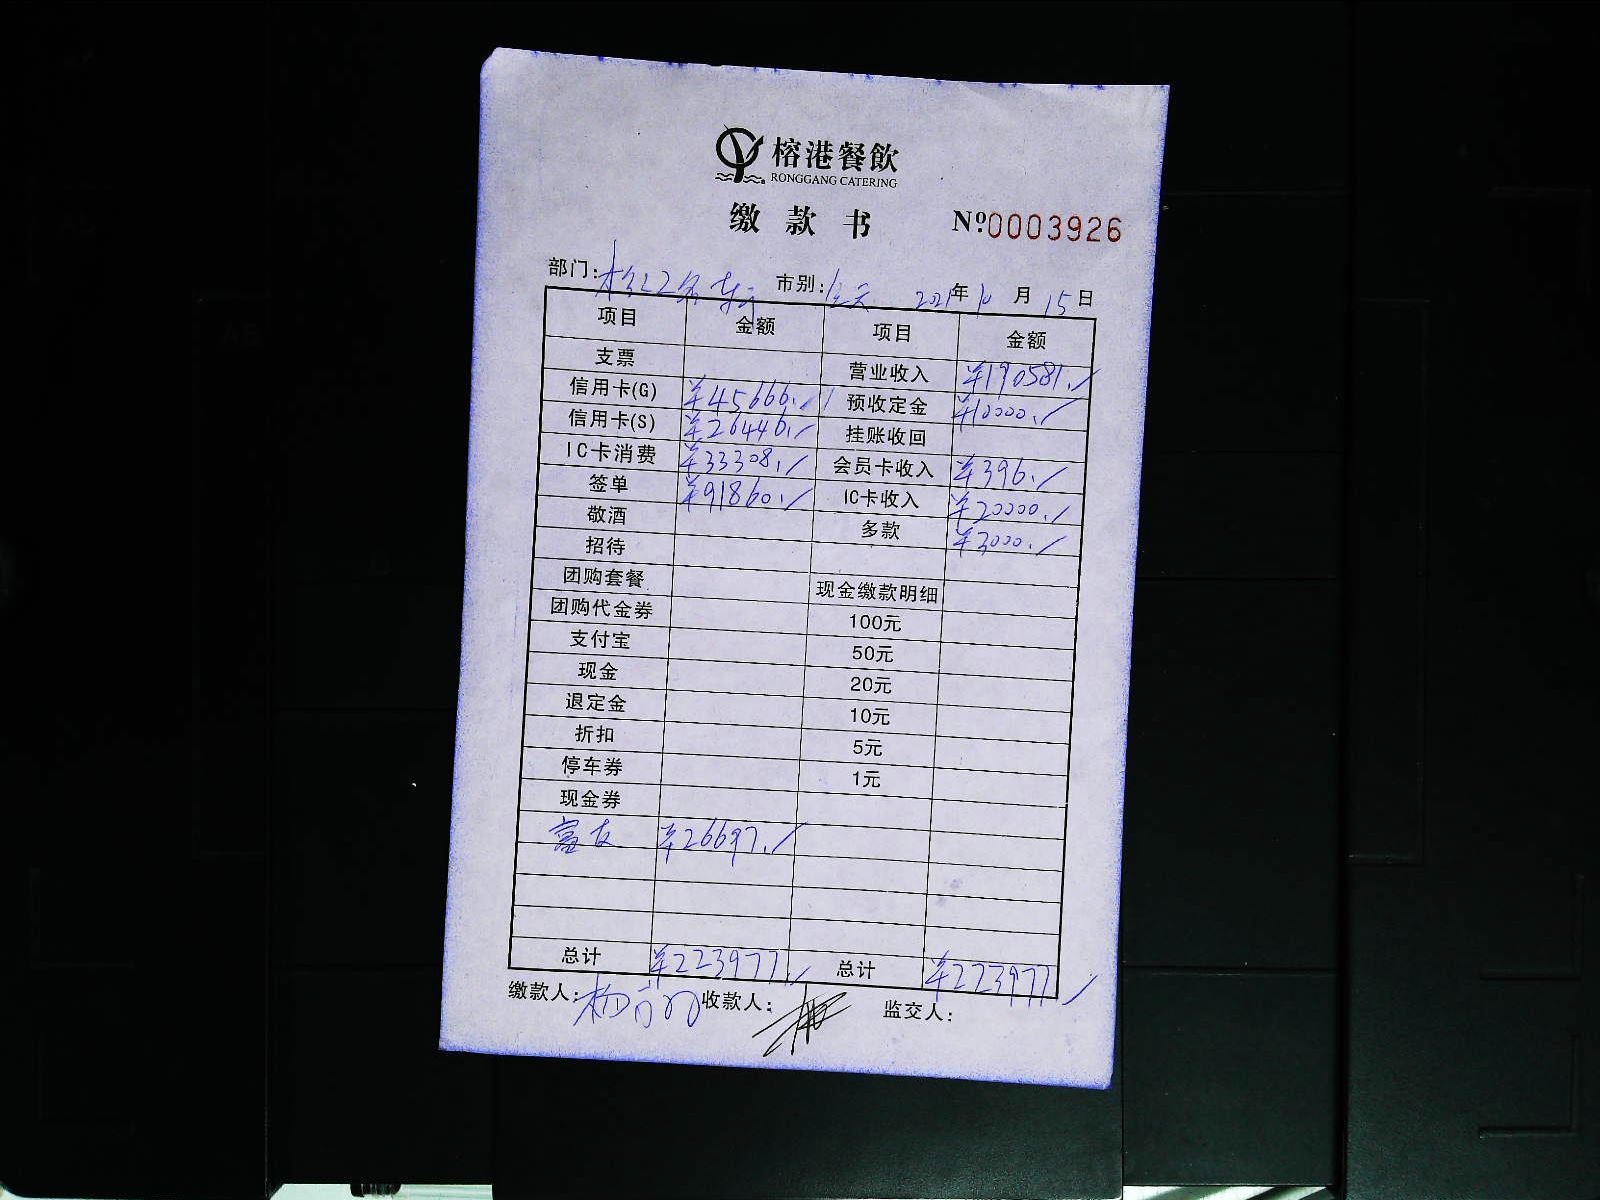 榕港餐飲
RONGGANG CATERING
缴款书 Nº0003926
部门: 市别:全天 2021年10月15日
项目 金额 项目 金额
支票 营业收入 ¥190581.
信用卡(G) ¥45666. 预收定金 ¥10000.
信用卡(S) ¥26446. 挂账收回
IC卡消费 ¥33308. 会员卡收入 ¥396.
签单 ¥91860. IC卡收入 ¥20000.
敬酒 多款 ¥3000.
招待
团购套餐 现金缴款明细
团购代金券 100元
支付宝 50元
现金 20元
退定金 10元
折扣 5元
停车券 1元
现金券
富友 ¥26697.
总计 ¥223977. 总计 ¥223977
缴款人: 收款人: 监交人: